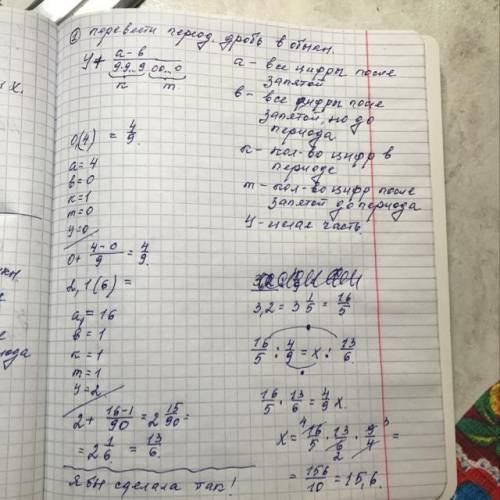 ① перевести период. дробь в обыкн.
y + a - b / 99...9 00...0
к m
a - все цифры после
запятой
в - все цифры после
запятой, но до
периода
к - кол-во цифр в
периоде
m - кол-во цифр после
запятой до периода
y - целая часть.
0,(4) = 4/9.
a = 4
b = 0
к = 1
m = 0
y = 0
0 + 4-0/9 = 4/9.
2,1(6) =
a = 16
b = 1
к = 1
m = 1
y = 2
2 + 16-1/90 = 2 15/90 =
= 2 1/6 = 13/6.
Я бы сделала так!
3,2 = 3 1/5 = 16/5
16/5 : 4/9 = x : 13/6
16/5 · 13/6 = 4/9 x.
x = 16/5 · 13/6 · 9/4 =
4 2 3
= 156/10 = 15,6.
х.